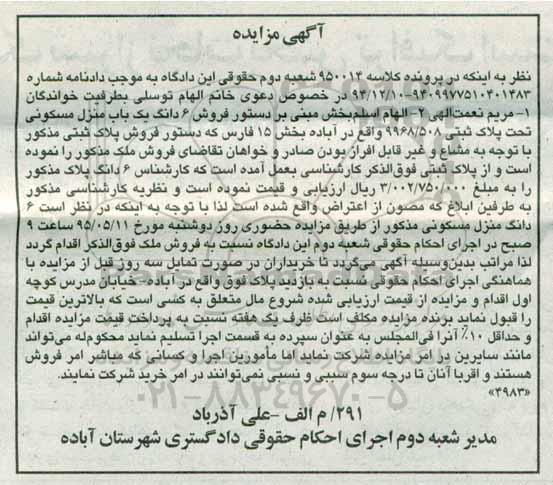 آگهی مزایده
نظر به اینکه در پرونده کلاسه ۹۵۰۰۱۴ شعبه دوم حقوقی این دادگاه به موجب دادنامه شماره
۹۴۰۹۹۷۷۵۱۰۴۰۱۴۸۳-۹۴/۱۲/۱۰ در خصوص دعوی خانم الهام توسلی بطرفیت خواندگان
۱- مریم نعمت‌الهی ۲- الهام اسلم‌بخش مبنی بر دستور فروش ۶ دانگ یک باب منزل مسکونی
تحت پلاک ثبتی ۹۹۶۸/۵۰۸ واقع در آباده بخش ۱۵ فارس که دستور فروش پلاک ثبتی مذکور
با توجه به مشاع و غیر قابل افراز بودن صادر و خواهان تقاضای فروش ملک مذکور را نموده
است و از پلاک ثبتی فوق‌الذکر کارشناسی بعمل آمده است که کارشناس ۶ دانگ پلاک مذکور
را به مبلغ ۳/۰۰۲/۷۵۰/۰۰۰ ریال ارزیابی و قیمت نموده است و نظریه کارشناسی مذکور
به طرفین ابلاغ که مصون از اعتراض واقع شده است لذا با توجه به اینکه در نظر است ۶
دانگ منزل مسکونی مذکور از طریق مزایده حضوری روز دوشنبه مورخ ۹۵/۰۵/۱۱ ساعت ۹
صبح در اجرای احکام حقوقی شعبه دوم این دادگاه نسبت به فروش ملک فوق‌الذکر اقدام گردد
لذا مراتب بدین‌وسیله آگهی می‌گردد تا خریداران در صورت تمایل سه روز قبل از مزایده با
هماهنگی اجرای احکام حقوقی نسبت به بازدید پلاک فوق واقع در آباده- خیابان مدرس کوچه
اول اقدام و مزایده از قیمت ارزیابی شده شروع مال متعلق به کسی است که بالاترین قیمت
را قبول نماید برنده مزایده مکلف است ظرف یک هفته نسبت به پرداخت قیمت مزایده اقدام
و حداقل ۱۰٪ آنرا فی‌المجلس به عنوان سپرده به قسمت اجرا تسلیم نماید محکوم‌له می‌تواند
مانند سایرین در امر مزایده شرکت نماید اما مأمورین اجرا و کسانی که مباشر امر فروش
هستند و اقربا آنان تا درجه سوم سببی و نسبی نمی‌توانند در امر خرید شرکت نمایند.
«۴۹۸۳»
۰۲۱-۸۸۳۴۹۶۷۰-۵
۲۹۱/ م الف -علی آذرباد
مدیر شعبه دوم اجرای احکام حقوقی دادگستری شهرستان آباده